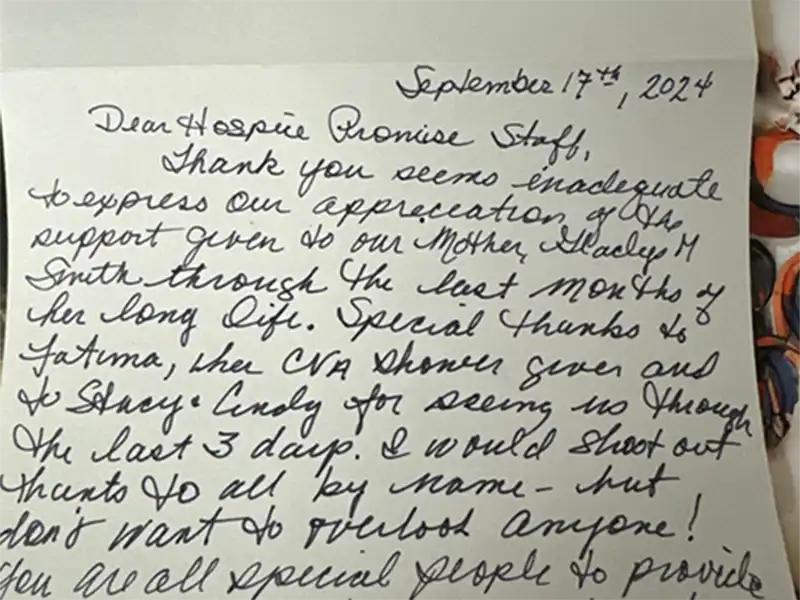 September 17th, 2024
Dear Hospice Promise Staff,
Thank you seems inadequate
to express our appreciation of the
support given to our Mother, Gladys M
Smith through the last months of
her long life. Special thanks to
Fatima, her CNA shower giver and
to Stacy & Cindy for seeing us through
the last 3 days. I would shoot out
thanks to all by name - but
don't want to overlook anyone!
You are all special people to provide